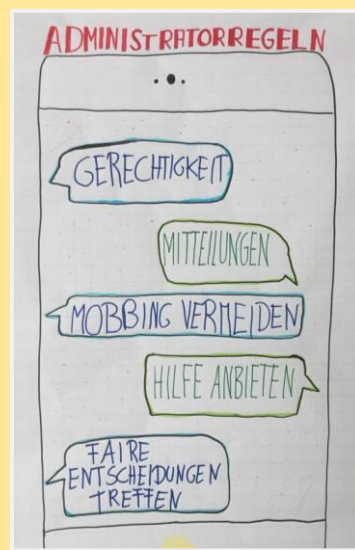 ADMINISTRATORREGELN
GERECHTIGKEIT
MITTEILUNGEN
MOBBING VERMEIDEN
HILFE ANBIETEN
FAIRE
ENTSCHEIDUNGEN
TREFFEN